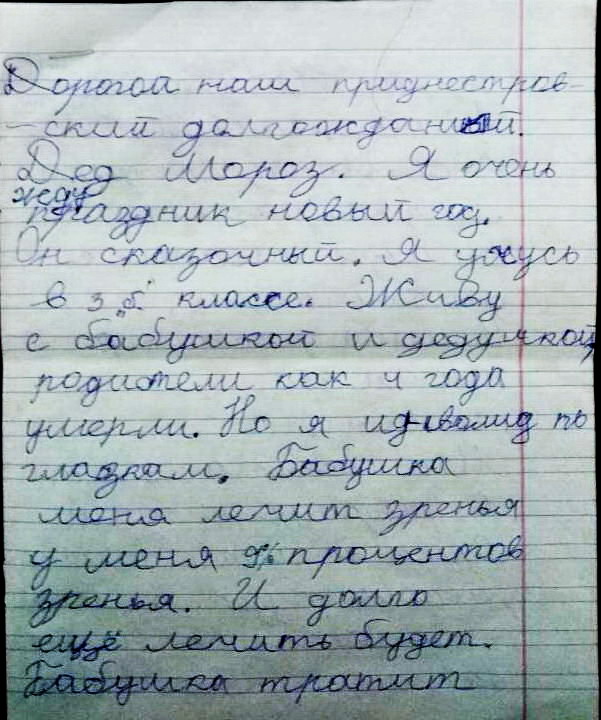 Дорогой наш приднестров-
-ский долгожданный
Дед Мороз. Я очень
жду
праздник новый год.
Он сказочный. Я учусь
в 3 "б" классе. Живу
с бабушкой и дедушкой,
родители как 4 года
умерли. Но я инволид по
глазкам. Бабушка
меня лечит зренья
у меня % процентов
зренья. И долго
ещё лечить будет.
Бабушка тратит